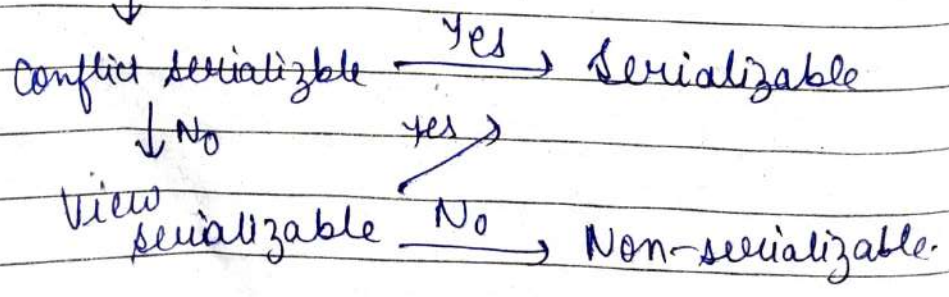 Conflict serializble Yes Serializable
No yes
View
serializable No Non-serializable.